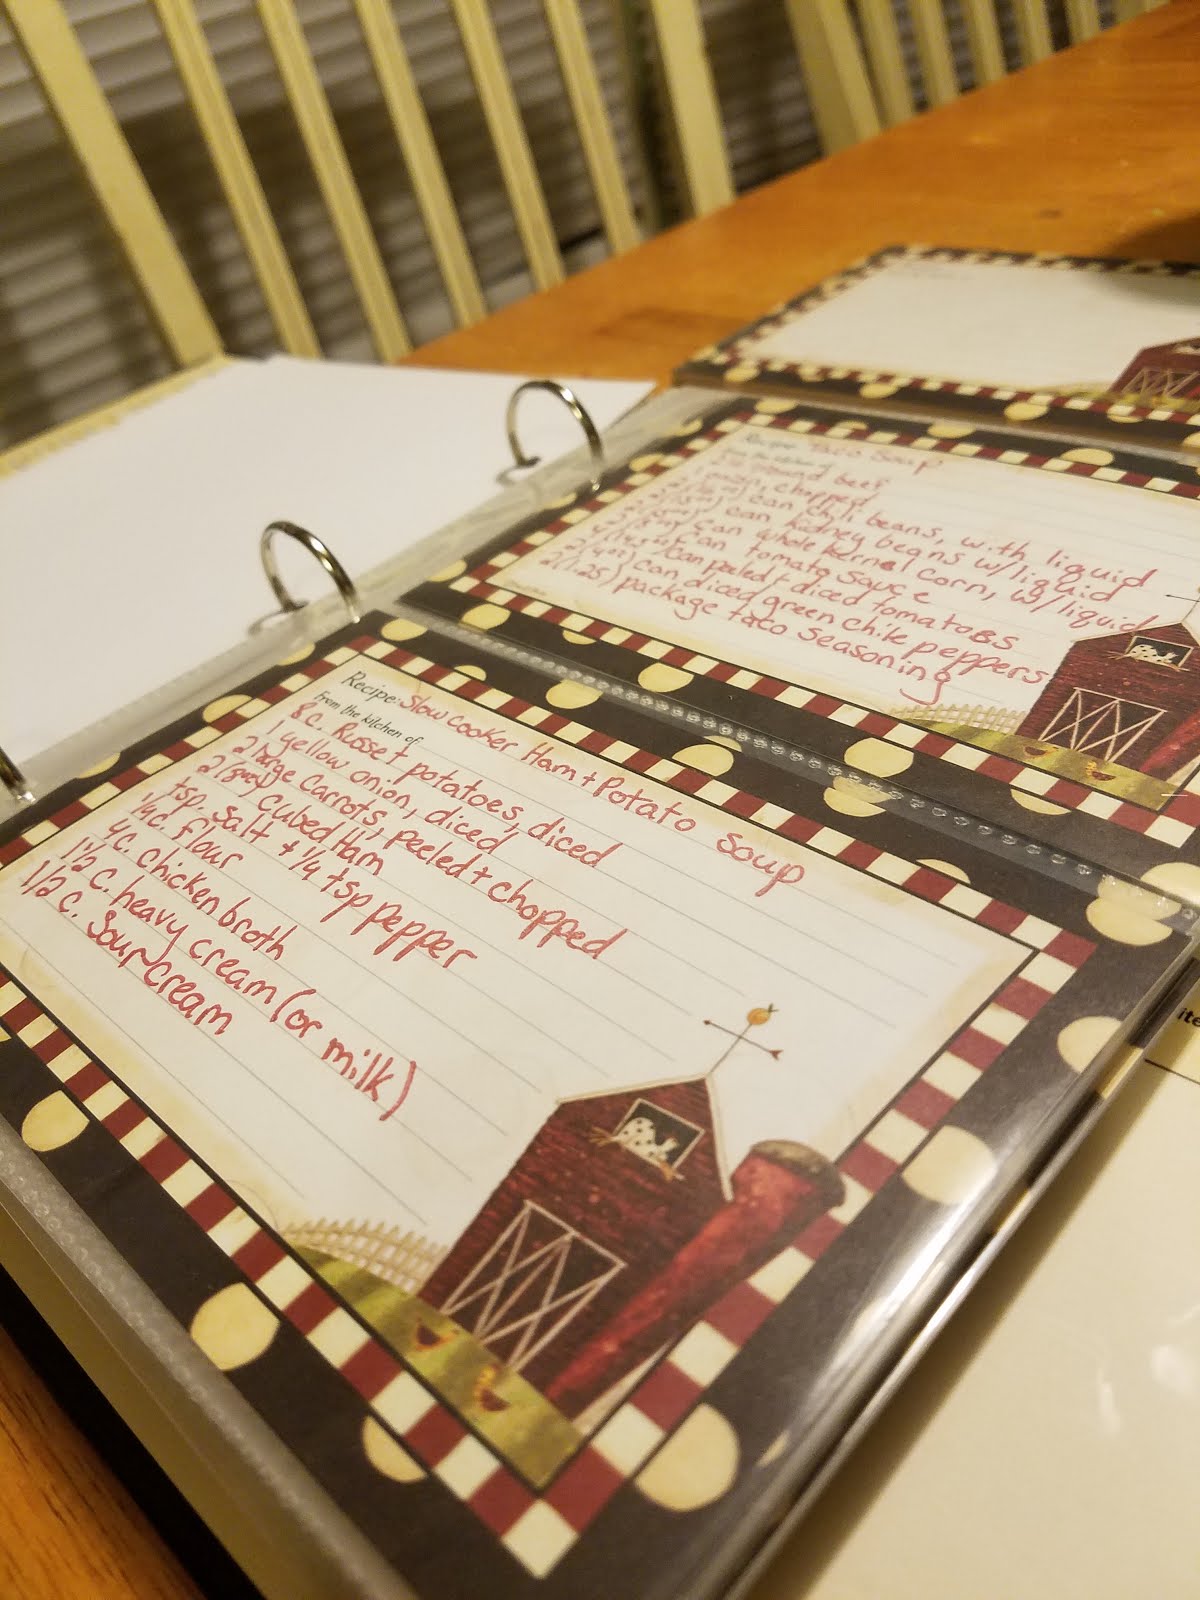 Recipe: Taco Soup
ground beef
onion, chopped
can chili beans, with liquid
can kidney beans w/ liquid
can whole kernel corn, w/ liquid
can tomato sauce
can peeled + diced tomatoes
2 (4oz) can diced green chile peppers
2 (1.25) package taco seasoning
Recipe: Slow Cooker Ham + Potato Soup
From the kitchen of
8 c. Russet potatoes, diced
1 yellow onion, diced
2 large carrots, peeled + chopped
2 (8oz) cubed Ham
tsp. salt + 1/4 tsp pepper
1/4 c. flour
4 c. chicken broth
1 1/2 c. heavy cream (or milk)
1/2 c. sour cream